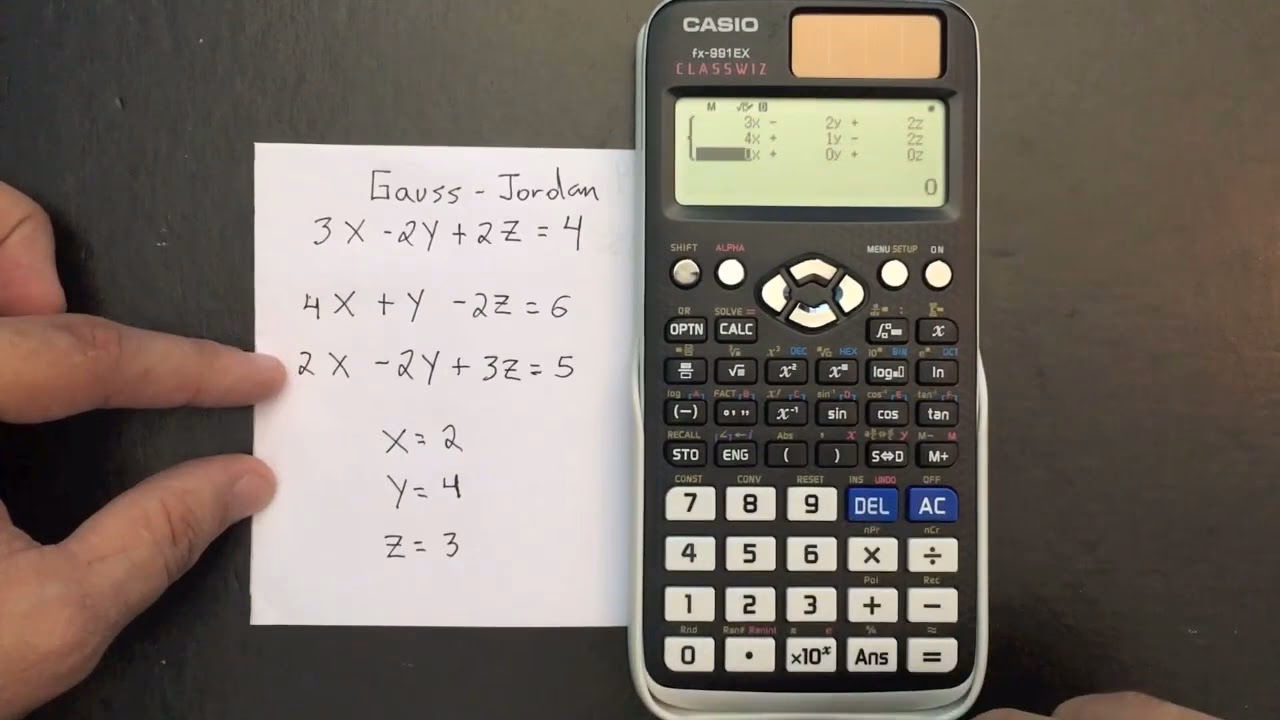 Gauss - Jordan
3X -2Y +2Z = 4
4X +Y -2Z = 6
2X -2Y + 3Z = 5
X = 2
Y = 4
Z = 3
CASIO
fx-991EX
CLASSWIZ
M
3x - 2y + 2z
4x + 1y - 2z
0x + 0y + 0z
0
SHIFT ALPHA MENU SETUP ON
QR SOLVE =
OPTN CALC x
DEC HEX BIN OCT
log ln
FACT
(−) sin cos tan
RECALL Abs M− M
STO ENG ( ) S⇔D M+
CONST CONV RESET INS UNDO OFF
7 8 9 DEL AC
nPr nCr
4 5 6 × ÷
Pol Rec
1 2 3 + −
Rnd Ran# RanInt % ≈
0 • ×10ˣ Ans =